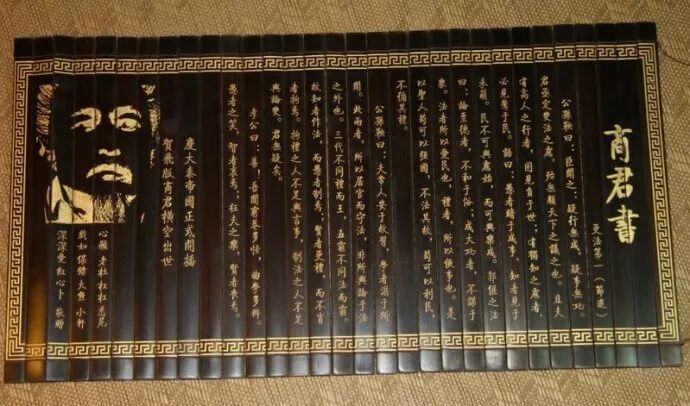 商君書
更法第一(節選)
公孫鞅曰:臣聞之:疑行無成,疑事無功。
君亟定變法之慮,殆無顧天下之議之也。且夫
有高人之行者,固見負于世;有獨知之慮者
必見訾于民。語曰:愚者暗于成事,知者見于
未萌。民不可與慮始,而可與樂成。郭偃之法
曰:論至德者,不和于俗;成大功者,不謀于
衆。法者所以愛民也,禮者,所以便事也。是
以聖人苟可以强國,不法其故,苟可以利民,
不循其禮。
公孫鞅曰:夫常人安于故習,學者溺于所
聞。此兩者,所以居官而守法,非所與論于法
之外也。三代不同禮而王,五霸不同法而霸。
故知者作法,而愚者制焉;賢者更禮,而不肖
者拘焉。拘禮之人不足與言事,制法之人不足
與論變。君無疑矣。
孝公曰:善!吾聞窮巷多怪,曲學多辨。
愚者之笑,智者哀焉,狂夫之樂,賢者喪焉。
慶大秦帝國正式開播
賀飛版商君橫空出世
心願 老杜 杜杜
如 保鏢 大魚 小軒
深深愛 紅心卜 敬贈